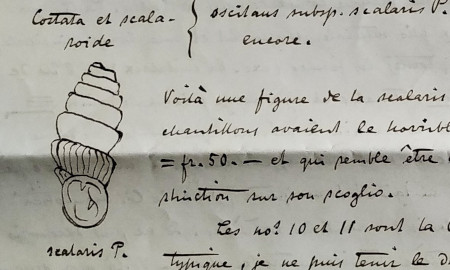 Costata et scala-
roide
oscitans subsp. scalaris P.
encore.
Voilà une figure de la scalaris
chantillons avaient le horribl
= fr. 50. — et qui semble être
struction sur son scoglio.
Les nos. 10 et 11 sont la
typique, je ne puis tenir le d
scalaris P.